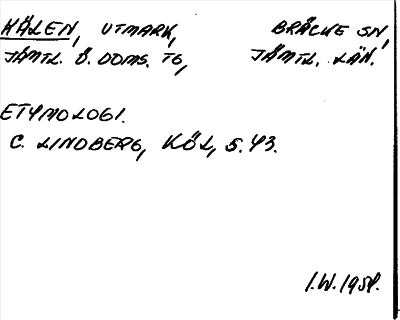 HÅLEN, UTMARK, BRÄCKE SN,
JÄMTL. Ö. DOMS. TG, JÄMTL. LÄN.
ETYMOLOGI.
C. LINDBERG, KÖL, S. 43.
I.W. 1958.